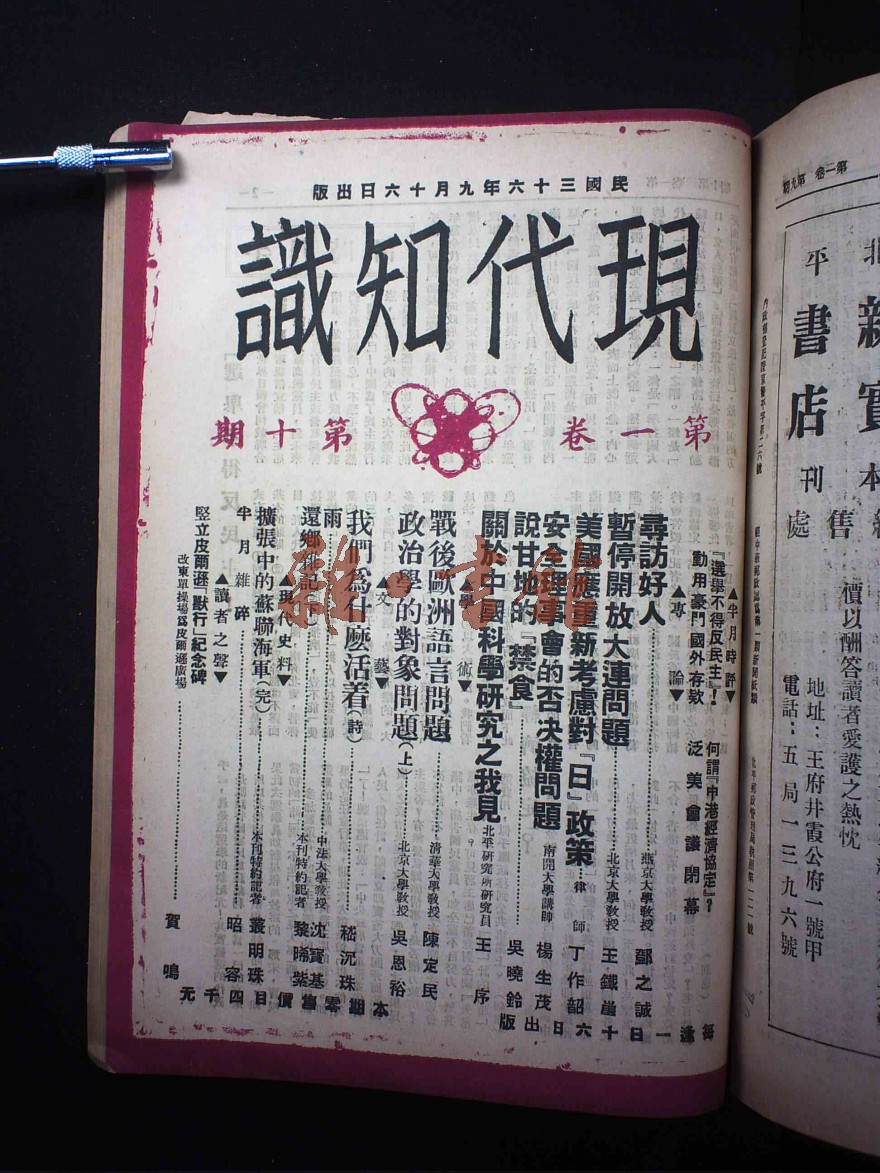 民國三十六年九月十六日出版
現代知識
第一卷 第十期
▲半月時評▼
『選舉不得反民主』！ 何謂『中港經濟協定』？
動用豪門國外存欵 泛美會議閉幕
▲專論▼
尋訪好人 燕京大學教授 鄧之誠
暫停開放大連問題 北京大學教授 王鐵崖
美國應重新考慮對『日』政策 律師 丁作韶
安全理事會的否決權問題 南開大學講師 楊生茂
說甘地的「禁食」 吳曉鈴
關於中國科學研究之我見 北平研究所研究員 王序
▲學術▼
戰後歐洲語言問題 清華大學教授 陳定民
政治學的對象問題(上) 北京大學教授 吳恩裕
▲文藝▼
我們爲什麽活着(詩) 嵇沉珠
雨 中法大學教授 沈寶基
還鄉雜記(下) 本刊特約記者 黎晞紫
▲現代史料▼
擴張中的蘇聯海軍(完) 本刊特約記者 叢明珠
半月雜碎 昭容
▲讀者之聲▼
堅立皮爾遜「獸行」紀念碑
改東單操場爲皮爾遜廣場 賀鳴
每逢一日十六日出版
本期零售價目四千元
第一卷 第九期
北平
書店刊
售處
價以酬答讀者愛護之熱忱
地址：王府井霞公府一號甲
電話：五局一三九六號